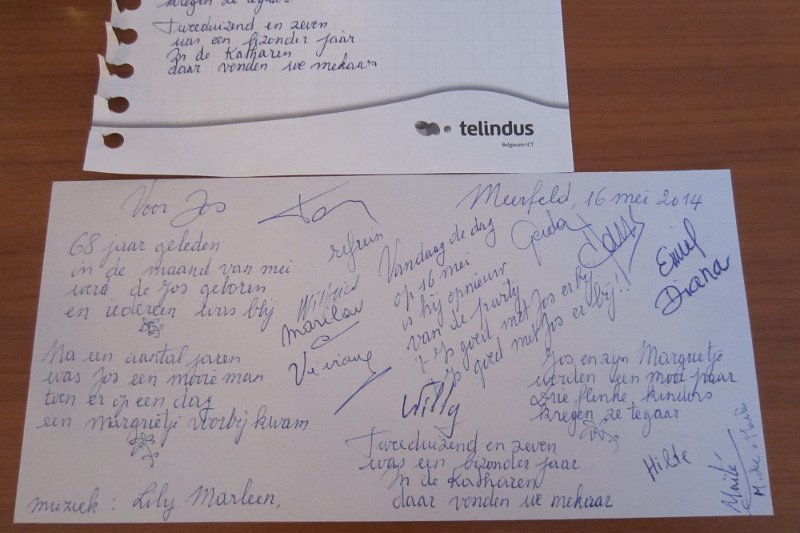 kregen ze tegaar
Tweeduizend en zeven
was een bizonder jaar
In de Katharen
daar vonden we mekaar
telindus
Belgacom ICT
Voor Jos
Meerfeld, 16 mei 2014
68 jaar geleden
in de maand van mei
werd de Jos geboren
en iedereen was blij
Na een aantal jaren
was Jos een mooie man
toen er op een dag
een margrietje voorbij kwam
muziek : Lily Marleen,
refrein
Vandaag de dag
op 16 mei
is hij opnieuw
van de party
't is goed met Jos erbij
is goed met Jos erbij!!
Wilfried
Marilou
Viviane
Willy
Gerda
Emiel
Diana
Jos en zijn Margrietje
werden een mooi paar
Drie flinke kinders
kregen ze tegaar
Tweeduizend en zeven
was een bizonder jaar
In de Katharen
daar vonden we mekaar
Hilde
Maité